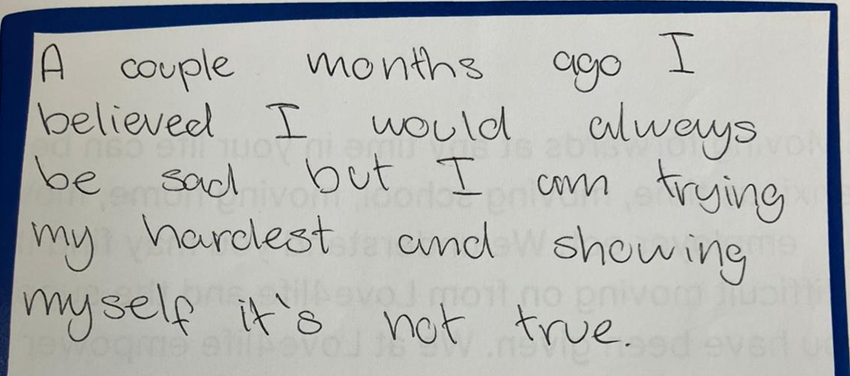 A couple months ago I
believed I would always
be sad but I am trying
my hardest and showing
myself it's not true.